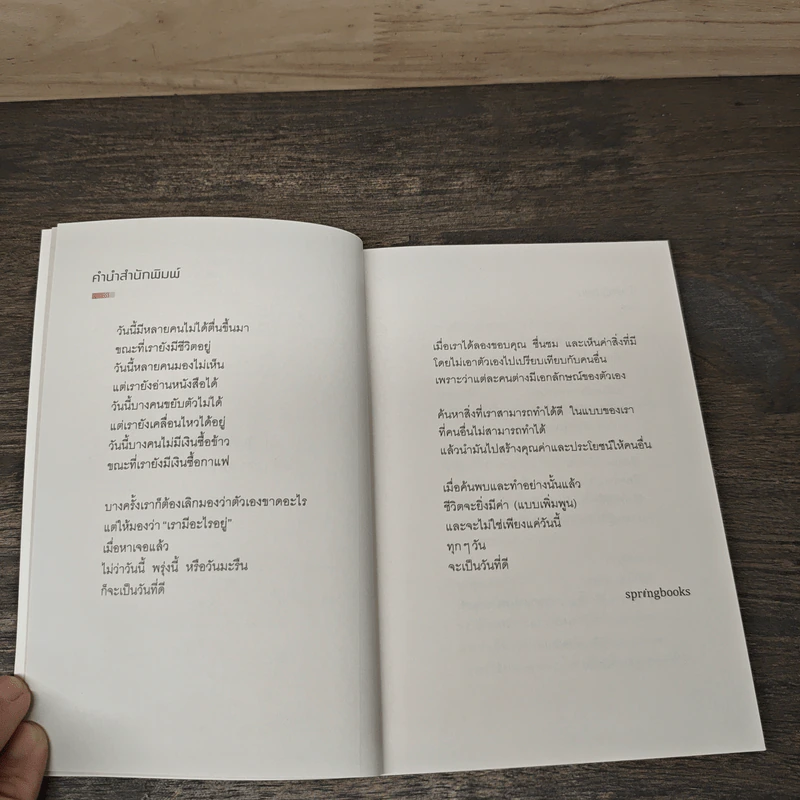 คำนำสำนักพิมพ์
วันนี้มีหลายคนไม่ได้ตื่นขึ้นมา
ขณะที่เรายังมีชีวิตอยู่
วันนี้หลายคนมองไม่เห็น
แต่เรายังอ่านหนังสือได้
วันนี้บางคนขยับตัวไม่ได้
แต่เรายังเคลื่อนไหวได้อยู่
วันนี้บางคนไม่มีเงินซื้อข้าว
ขณะที่เรายังมีเงินซื้อกาแฟ
บางครั้งเราก็ต้องเลิกมองว่าตัวเองขาดอะไร
แต่ให้มองว่า “เรามีอะไรอยู่”
เมื่อหาเจอแล้ว
ไม่ว่าวันนี้ พรุ่งนี้ หรือวันมะรืน
ก็จะเป็นวันที่ดี
เมื่อเราได้ลองขอบคุณ ชื่นชม และเห็นค่าสิ่งที่มี
โดยไม่เอาตัวเองไปเปรียบเทียบกับคนอื่น
เพราะว่าแต่ละคนต่างมีเอกลักษณ์ของตัวเอง
ค้นหาสิ่งที่เราสามารถทำได้ดี ในแบบของเรา
ที่คนอื่นไม่สามารถทำได้
แล้วนำมันไปสร้างคุณค่าและประโยชน์ให้คนอื่น
เมื่อค้นพบและทำอย่างนั้นแล้ว
ชีวิตจะยิ่งมีค่า (แบบเพิ่มพูน)
และจะไม่ใช่เพียงแค่วันนี้
ทุก ๆ วัน
จะเป็นวันที่ดี
springbooks